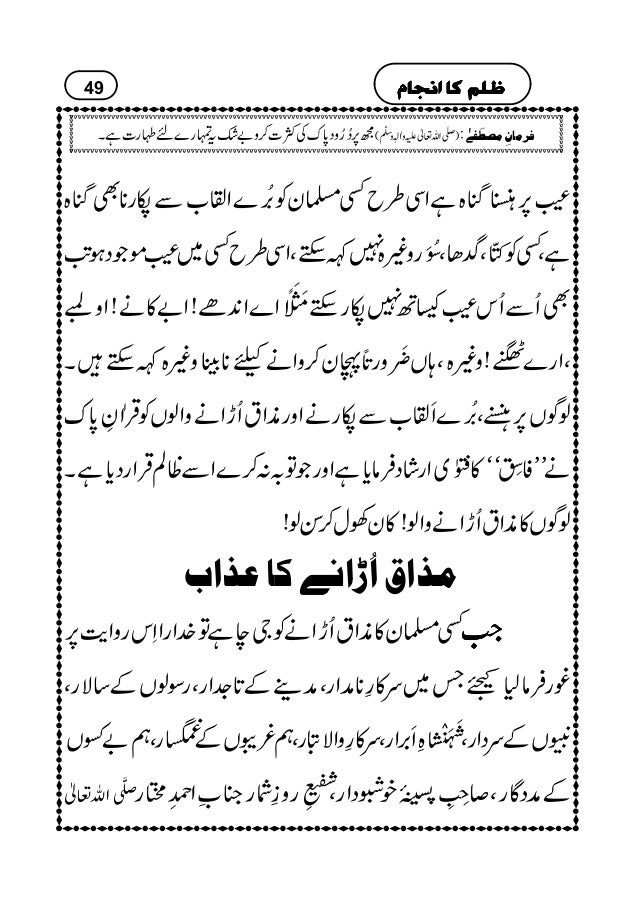 ظلم کا انجام
49
فرمانِ مصطفےٰ: (صلی اللہ تعالیٰ علیہ والہ وسلم) مجھ پر دُرُود پاک کی کثرت کرو بے شک یہ تمہارے لئے طہارت ہے۔
عیب پر ہنسنا گناہ ہے اسی طرح کسی مسلمان کو بُرے القاب سے پکارنا بھی گناہ
ہے، کسی کو کتّا، گدھا، سُوَر وغیرہ نہیں کہہ سکتے، اسی طرح کسی میں عیب موجود ہو تب
بھی اُسے اُس عیب کیساتھ نہیں پکار سکتے مَثَلاً اے اندھے! ابے کانے! او لمبے
،ارے ٹھگنے! وغیرہ، ہاں ضَرورتاً پہچان کروانے کیلئے نابینا وغیرہ کہہ سکتے ہیں۔
لوگوں پر ہنسنے، بُرے اَلقاب سے پکارنے اور مذاق اُڑانے والوں کو قرآنِ پاک
نے ’’فاسِق‘‘ کا فتوٰی ارشاد فرمایا ہے اور جو توبہ نہ کرے اسے ظالم قرار دیا ہے۔
لوگوں کا مذاق اُڑانے والو! کان کھول کر سن لو!
مذاق اُڑانے کا عذاب
جب کسی مسلمان کا مذاق اُڑانے کو جی چاہے تو خدارا اِس روایت پر
غور فرما لیا کیجئے جس میں سرکارِ نامدار، مدینے کے تاجدار، رسولوں کے سالار،
نبیوں کے سردار، شَہَنْشاہِ اَبرار، سرکارِ والا تبار، ہم غریبوں کے غمگسار، ہم بے کسوں
کے مددگار، صاحِبِ پسینۂ خوشبودار، شفیعِ روزِ شمار جنابِ احمدِ مختار صلَّی اللہ تعالیٰ